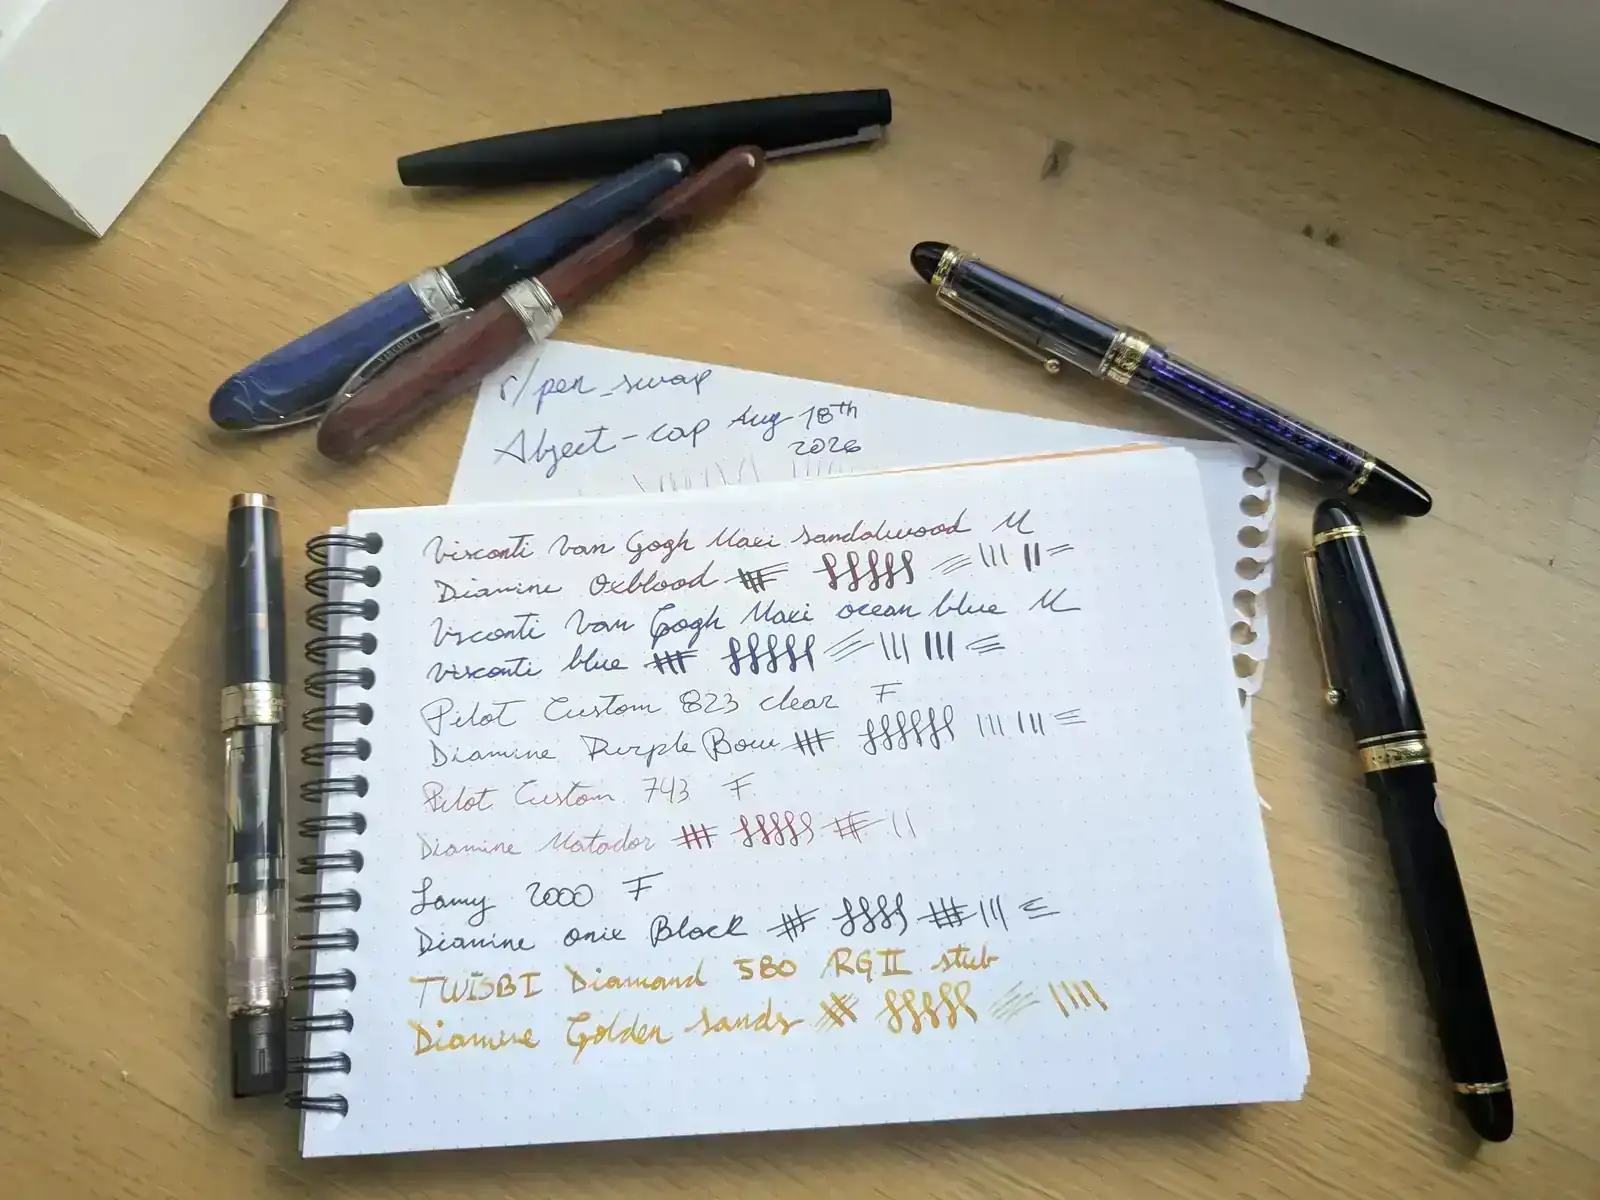 VISCONTI
r/pen_swap
Abject-cap Aug 18th
2026
Visconti Van Gogh Maxi sandalwood M
Diamine Oxblood
Visconti Van Gogh Maxi ocean blue M
Visconti blue
Pilot Custom 823 clear F
Diamine Purple Bow
Pilot Custom 743 F
Diamine Matador
Lamy 2000 F
Diamine onix Black
TWISBI Diamond 580 RGII stub
Diamine Golden Sands